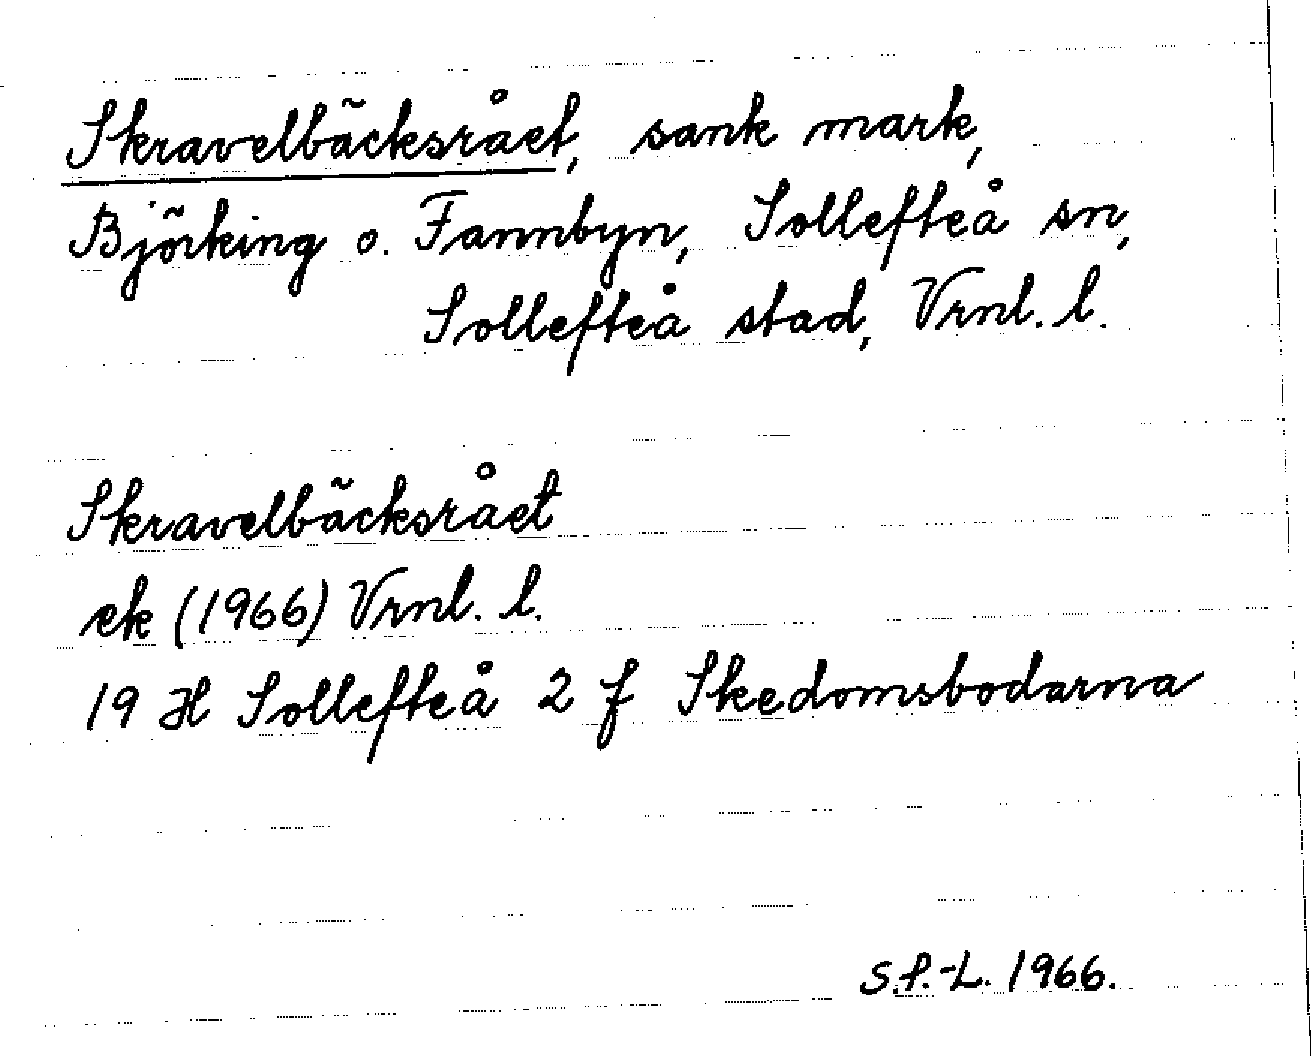 Skravelbäcksrået, sank mark,
Björking o. Fannbyn, Sollefteå sn,
Sollefteå stad, Vrnl. l.
Skravelbäcksrået
ek (1966) Vrnl. l.
19 H Sollefteå 2 f Skedomsbodarna
S.P.-L. 1966.